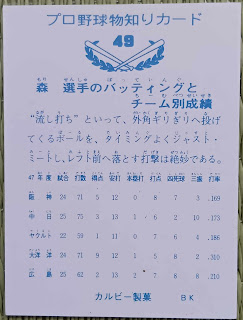 プロ野球物知りカード
49
森 選手のバッティングと
チーム別成績
“流し打ち”といって、外角ギリギリへ投げ
てくるボールを、タイミングよくジャスト・
ミートし、レフト前へ落とす打撃は絶妙である。
47年度 試合 打数 得点 安打 本塁打 打点 四死球 三振 打率
阪神 24 71 5 12 0 8 7 3 .169
中日 25 75 3 13 1 6 2 10 .173
ヤクルト 22 24 1 7 6 4 .186
大洋 24 71 9 22 3 5 2 .310
広島 25 62 2 13 2 7 6 8 .210
カルビー製菓 BK